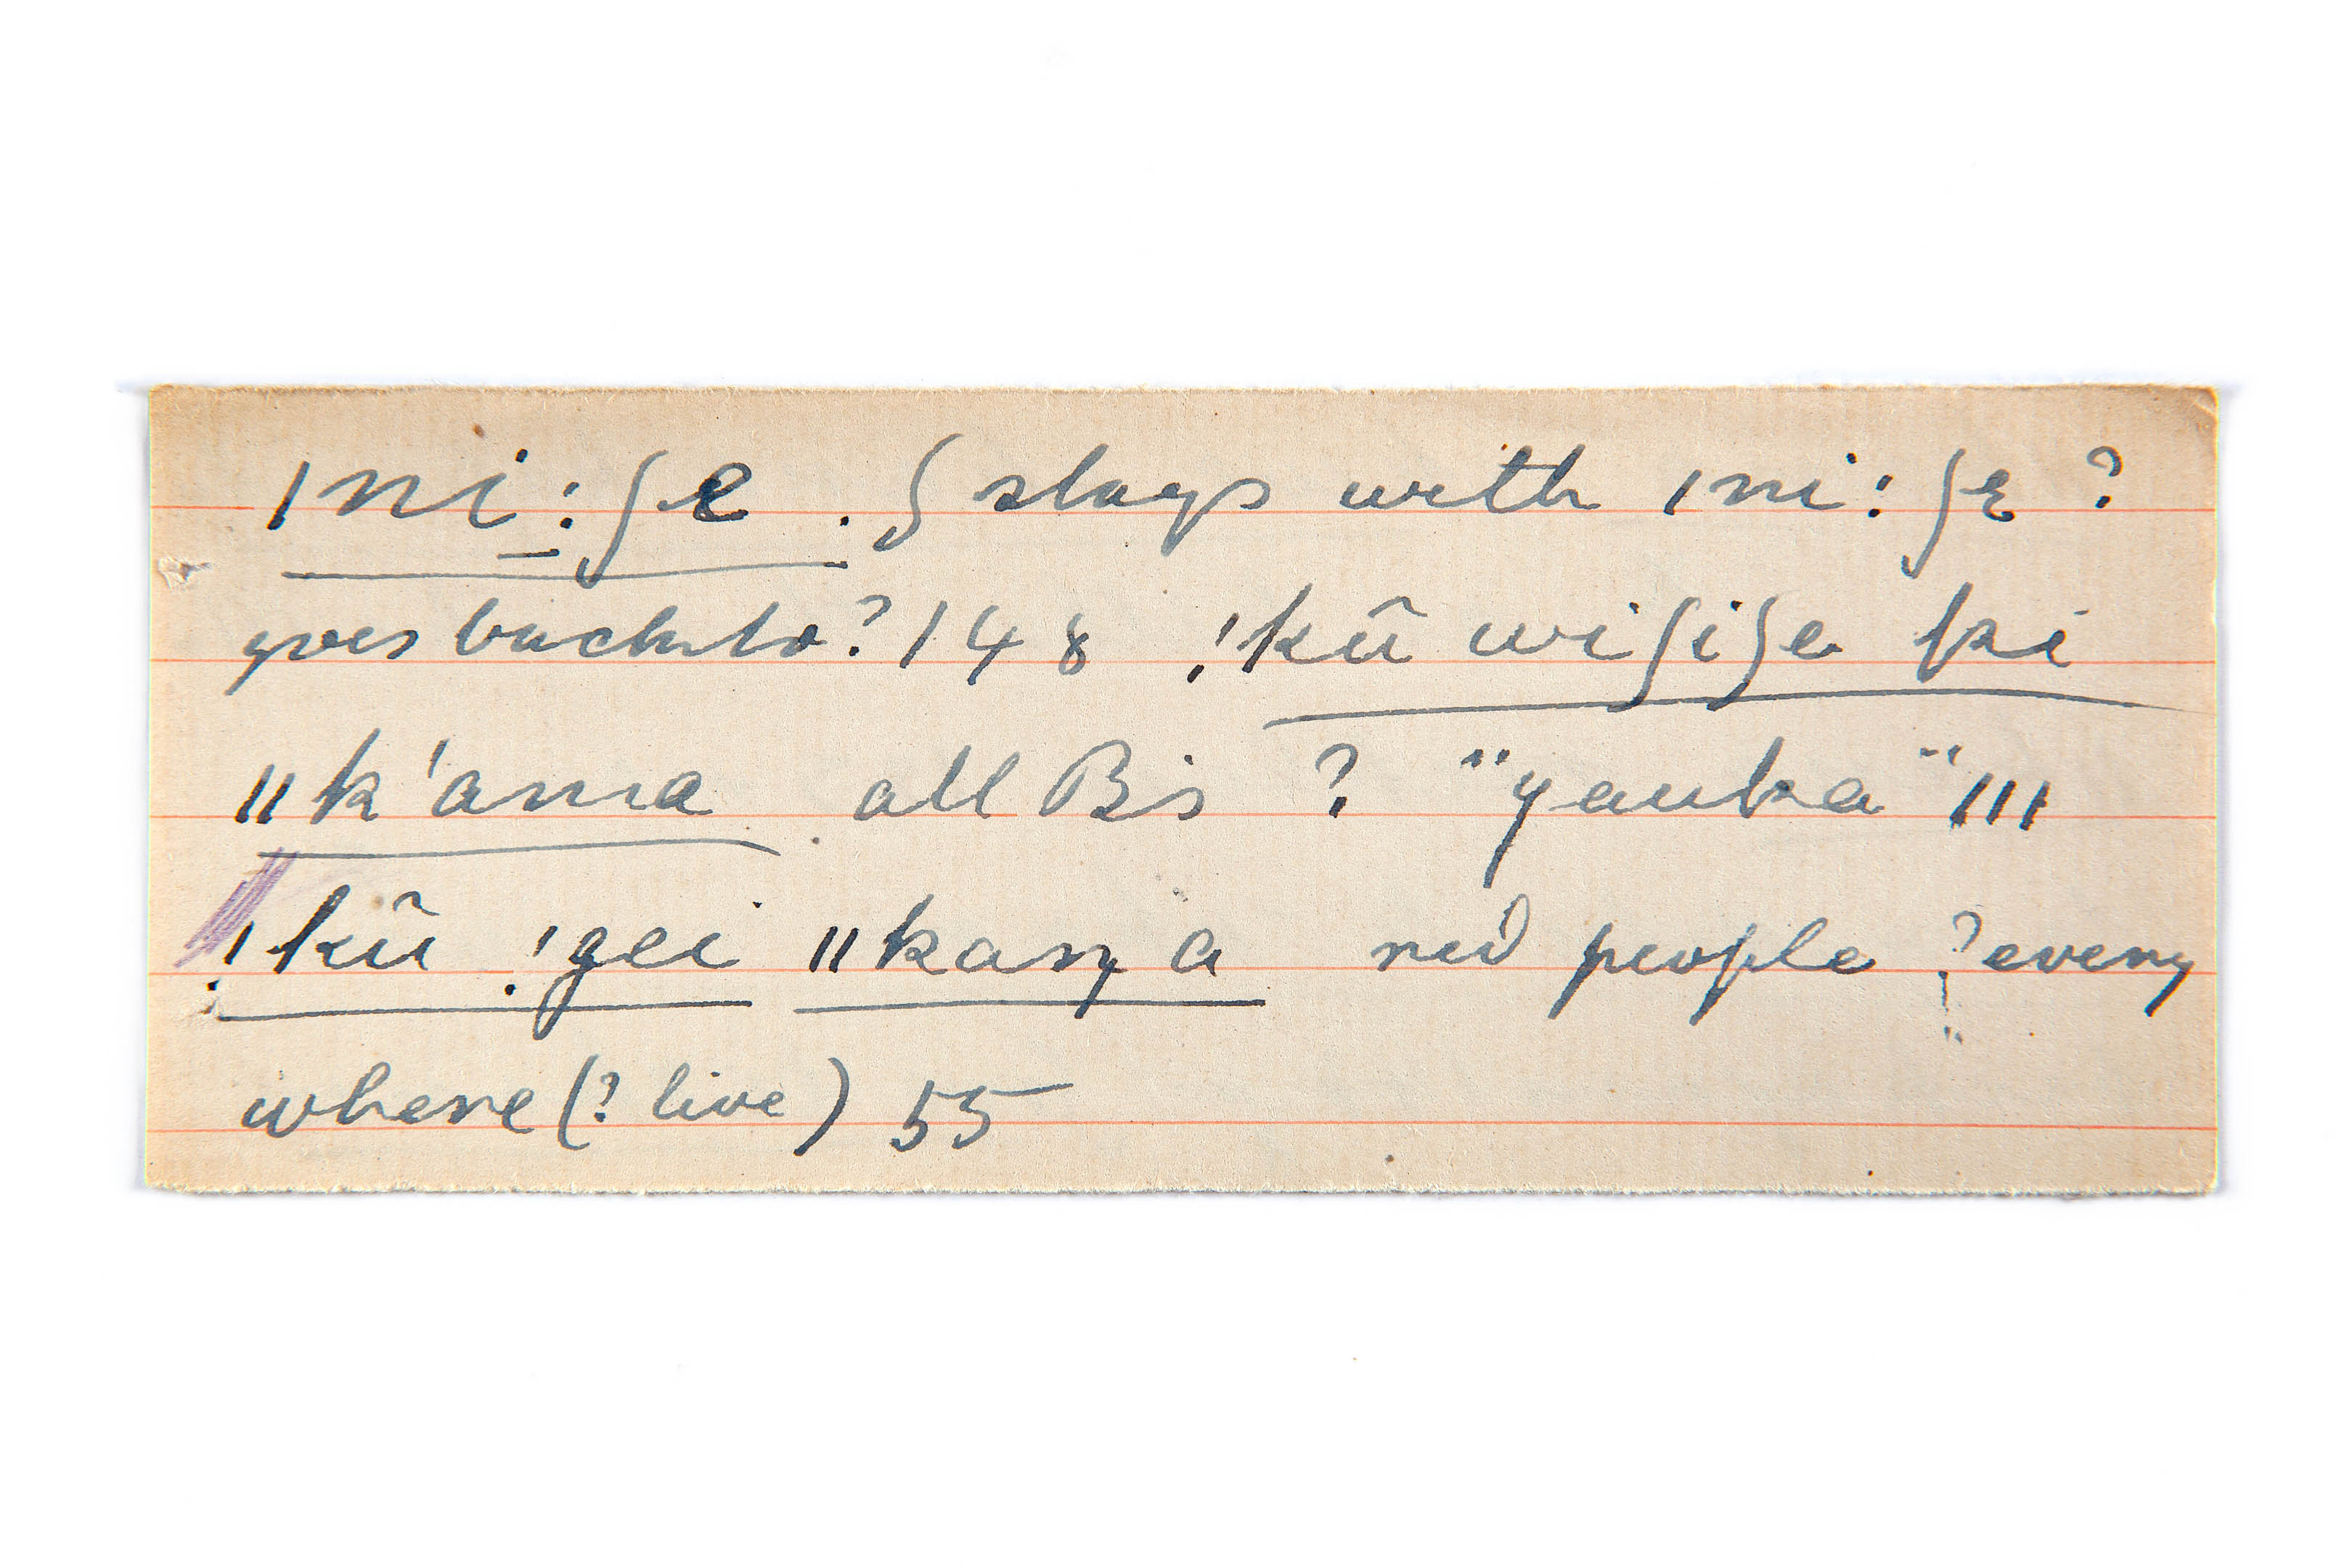 ǀni:ʃe . ʃ stays with ǀni:ʃɛ ?
goes back to? 148 !kũ wiʃiʃe ki
ǁk'ama all Bs ? "yauka" 111
!kũ !gei ǁkaŋa red people ? every
where (? live) 55